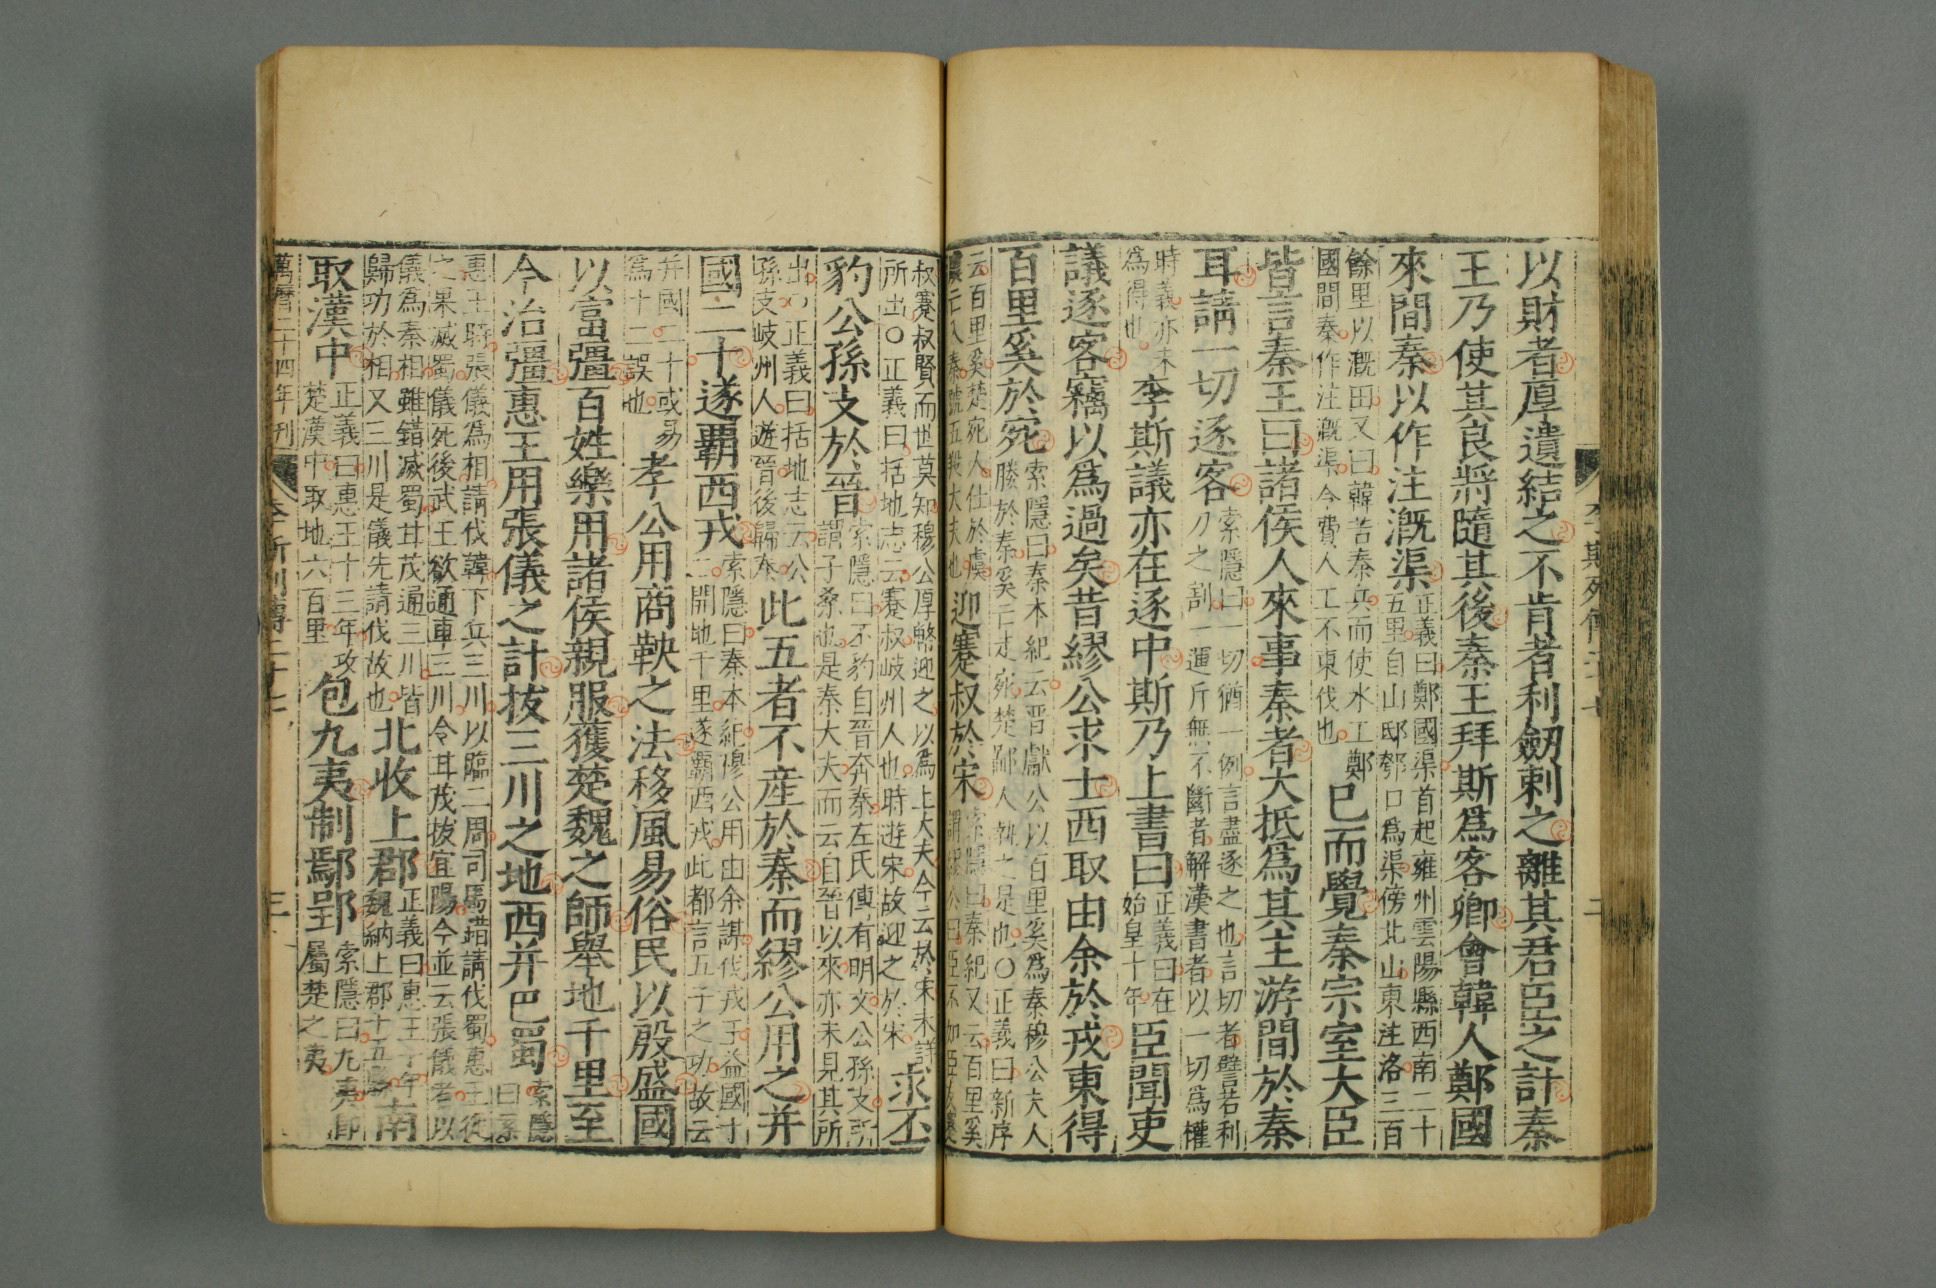 以財者厚遺結之不肯者利劒刺之離其君臣之計秦
王乃使其良將隨其後秦王拜斯爲客卿會韓人鄭國
來間秦以作注漑渠正義曰鄭國渠首起雍州雲陽縣西南二十
五里自山邸瓠口爲渠傍北山東注洛三百
餘里以漑田又曰韓苦秦兵而使水工鄭
國間秦作注漑渠令費人工不東伐也
已而覺秦宗室大臣
皆言秦王曰諸侯人來事秦者大抵爲其主游間於秦
耳請一切逐客索隱曰一切猶一例言盡逐之也言切者譬若利
刀之割一運斤無不斷者解漢書者以一切爲權
時義亦未
爲得也
李斯議亦在逐中斯乃上書曰正義曰在
始皇十年
臣聞吏
議逐客竊以爲過矣昔繆公求士西取由余於戎東得
百里奚於宛索隱曰秦本紀云晋獻公以百里奚爲秦穆公夫人
媵於秦奚亡走宛楚鄙人執之是也○正義曰新序
云百里奚楚宛人仕於虞
虞亡入秦號五羖大夫也
迎蹇叔於宋索隱曰秦紀又云百里奚
謂繆公曰臣不如臣友蹇
叔蹇叔賢而世莫知穆公厚幣迎之以爲上大夫今云於宋未詳
所出○正義曰括地志云蹇叔岐州人也時遊宋故迎之於宋
求丕
豹公孫支於晉索隱曰丕豹自晉奔秦左氏傳有明文公孫支所
謂子桑也是秦大夫而云自晉以來亦未見其所
出○正義曰括地志云公
孫支岐州人遊晉後歸秦
此五者不産於秦而繆公用之并
國二十遂覇西戎索隱曰秦本紀穆公用由余謀伐戎王益國十
二開地千里遂覇西戎此都言五子之功故云
并國二十或易
爲十二誤也
孝公用商鞅之法移風易俗民以殷盛國
以富彊百姓樂用諸侯親服獲楚魏之師舉地千里至
今治彊惠王用張儀之計拔三川之地西并巴蜀索隱
曰案
惠王時張儀爲相請伐韓下兵三川以臨二周司馬錯請伐蜀惠王從
之果滅蜀儀死後武王欲通車三川令甘茂拔宜陽今並云張儀者以
儀爲秦相雖錯滅蜀甘茂通三川皆
歸功於相又三川是儀先請伐故也
北收上郡正義曰惠王十年
魏納上郡十五縣
南
取漢中正義曰惠王十三年攻
楚漢中取地六百里
包九夷制鄢郢索隱曰九夷即
屬楚之夷
萬曆二十四年刊
李斯列傳二十七
三
李斯列傳二十七
二